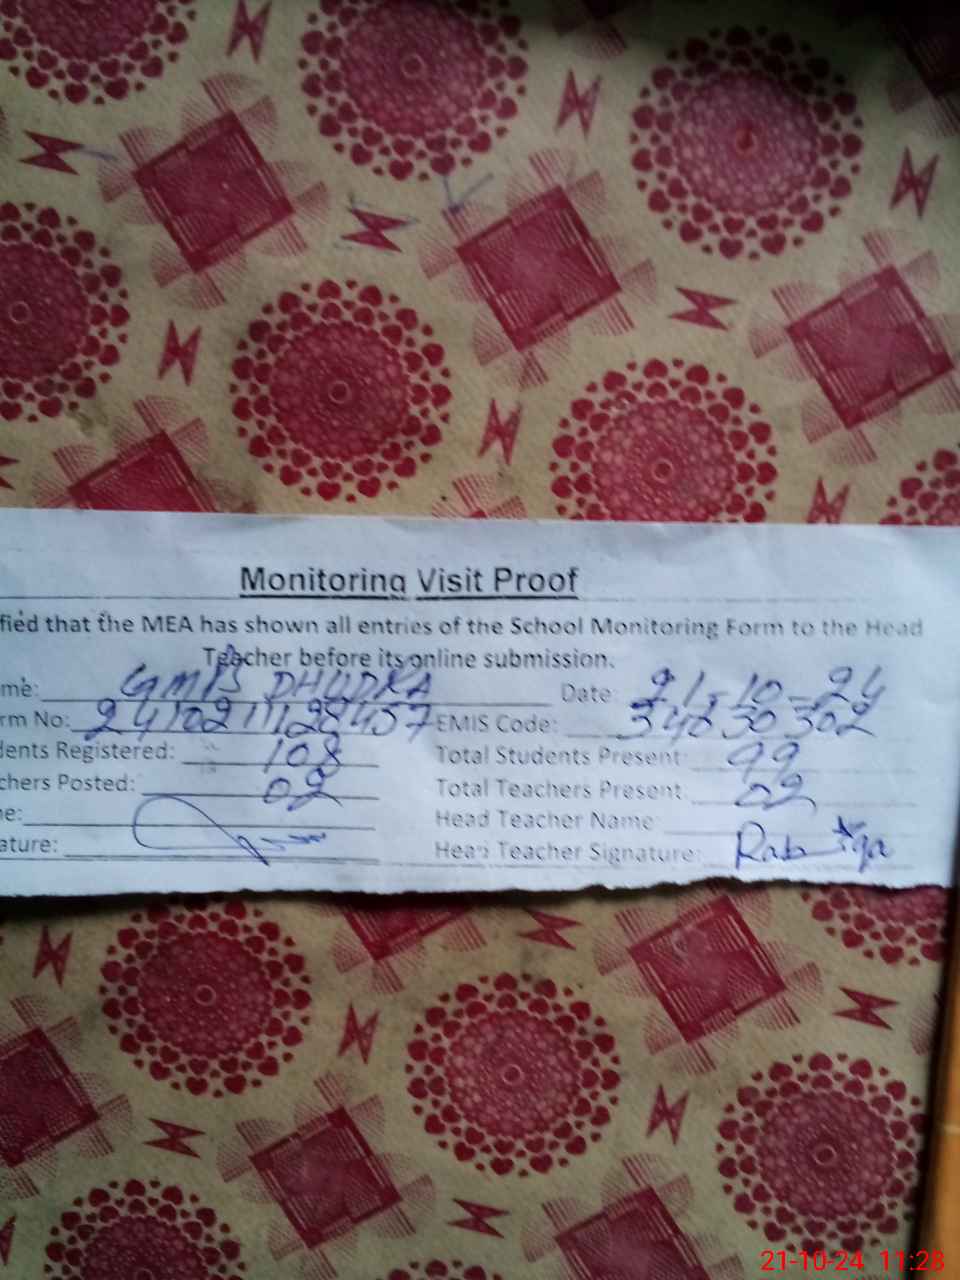 Monitoring Visit Proof
fied that the MEA has shown all entries of the School Monitoring Form to the Head
Teacher before its online submission.
me: GMPS DHUDRA Date: 21-10-24
rm No: EMIS Code: 34030302
dents Registered: 108 Total Students Present: 99
chers Posted: 02 Total Teachers Present: 02
e: Head Teacher Name:
ature: Head Teacher Signature:
21-10-24 11:28